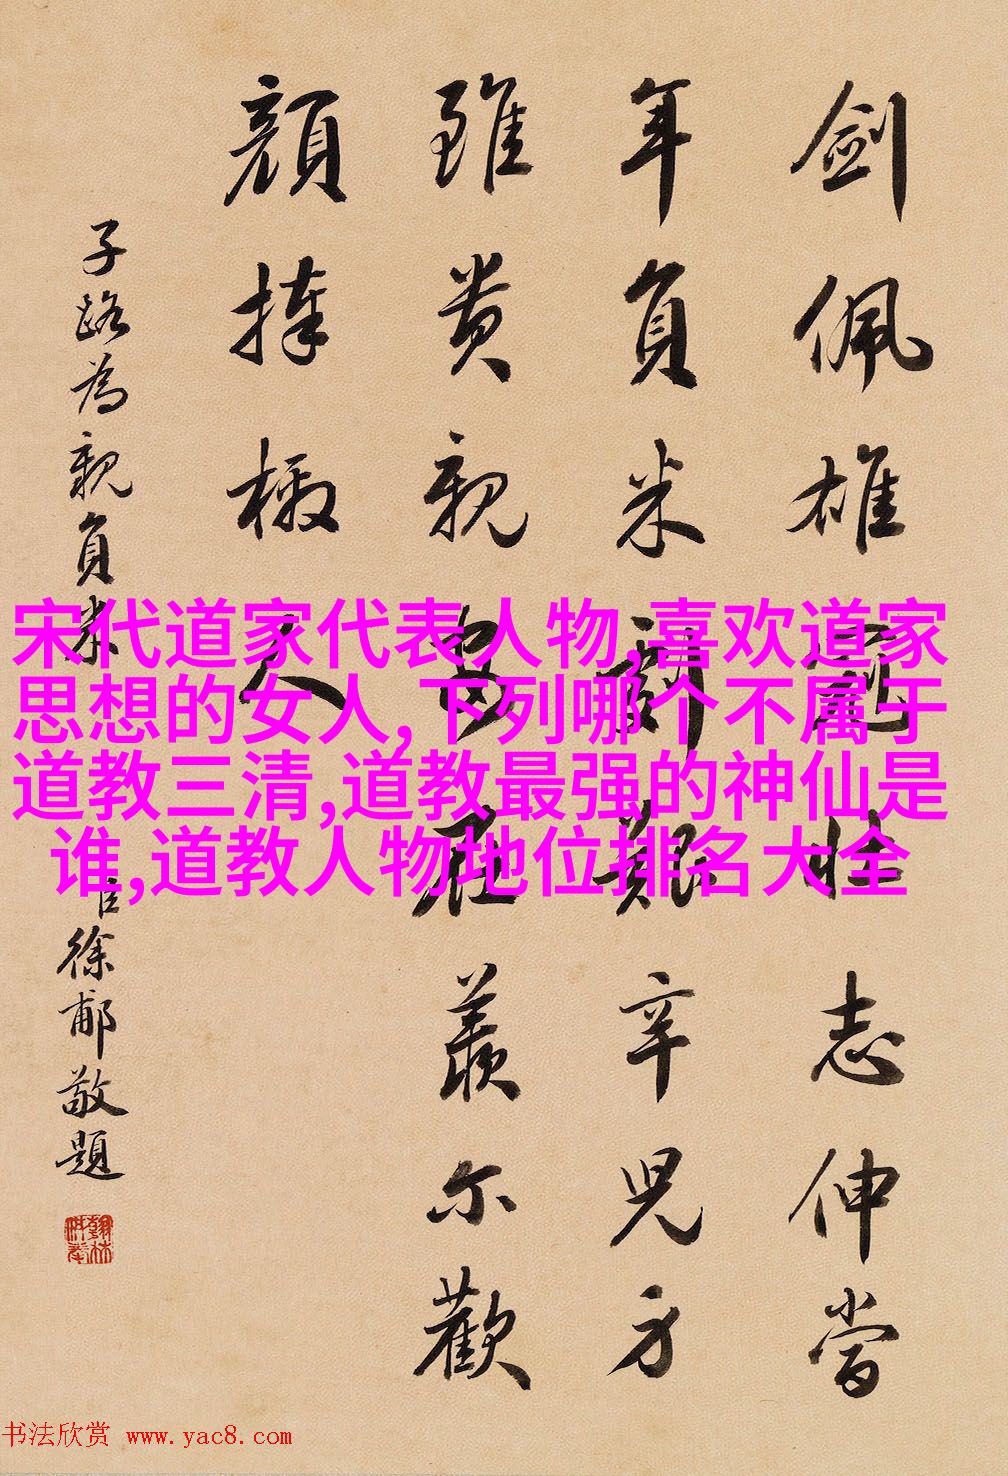 劍佩雄冠壯志伸當
年負米艱辛兒方
雖貴親羨尔歡
顏捧檄人
子路為親負米
臣徐郙敬題
宋代道家代表人物,喜欢道家
思想的女人,下列哪个不属于
道教三清,道教最强的神仙是
谁,道教人物地位排名大全
书法欣赏 www.yac8.com